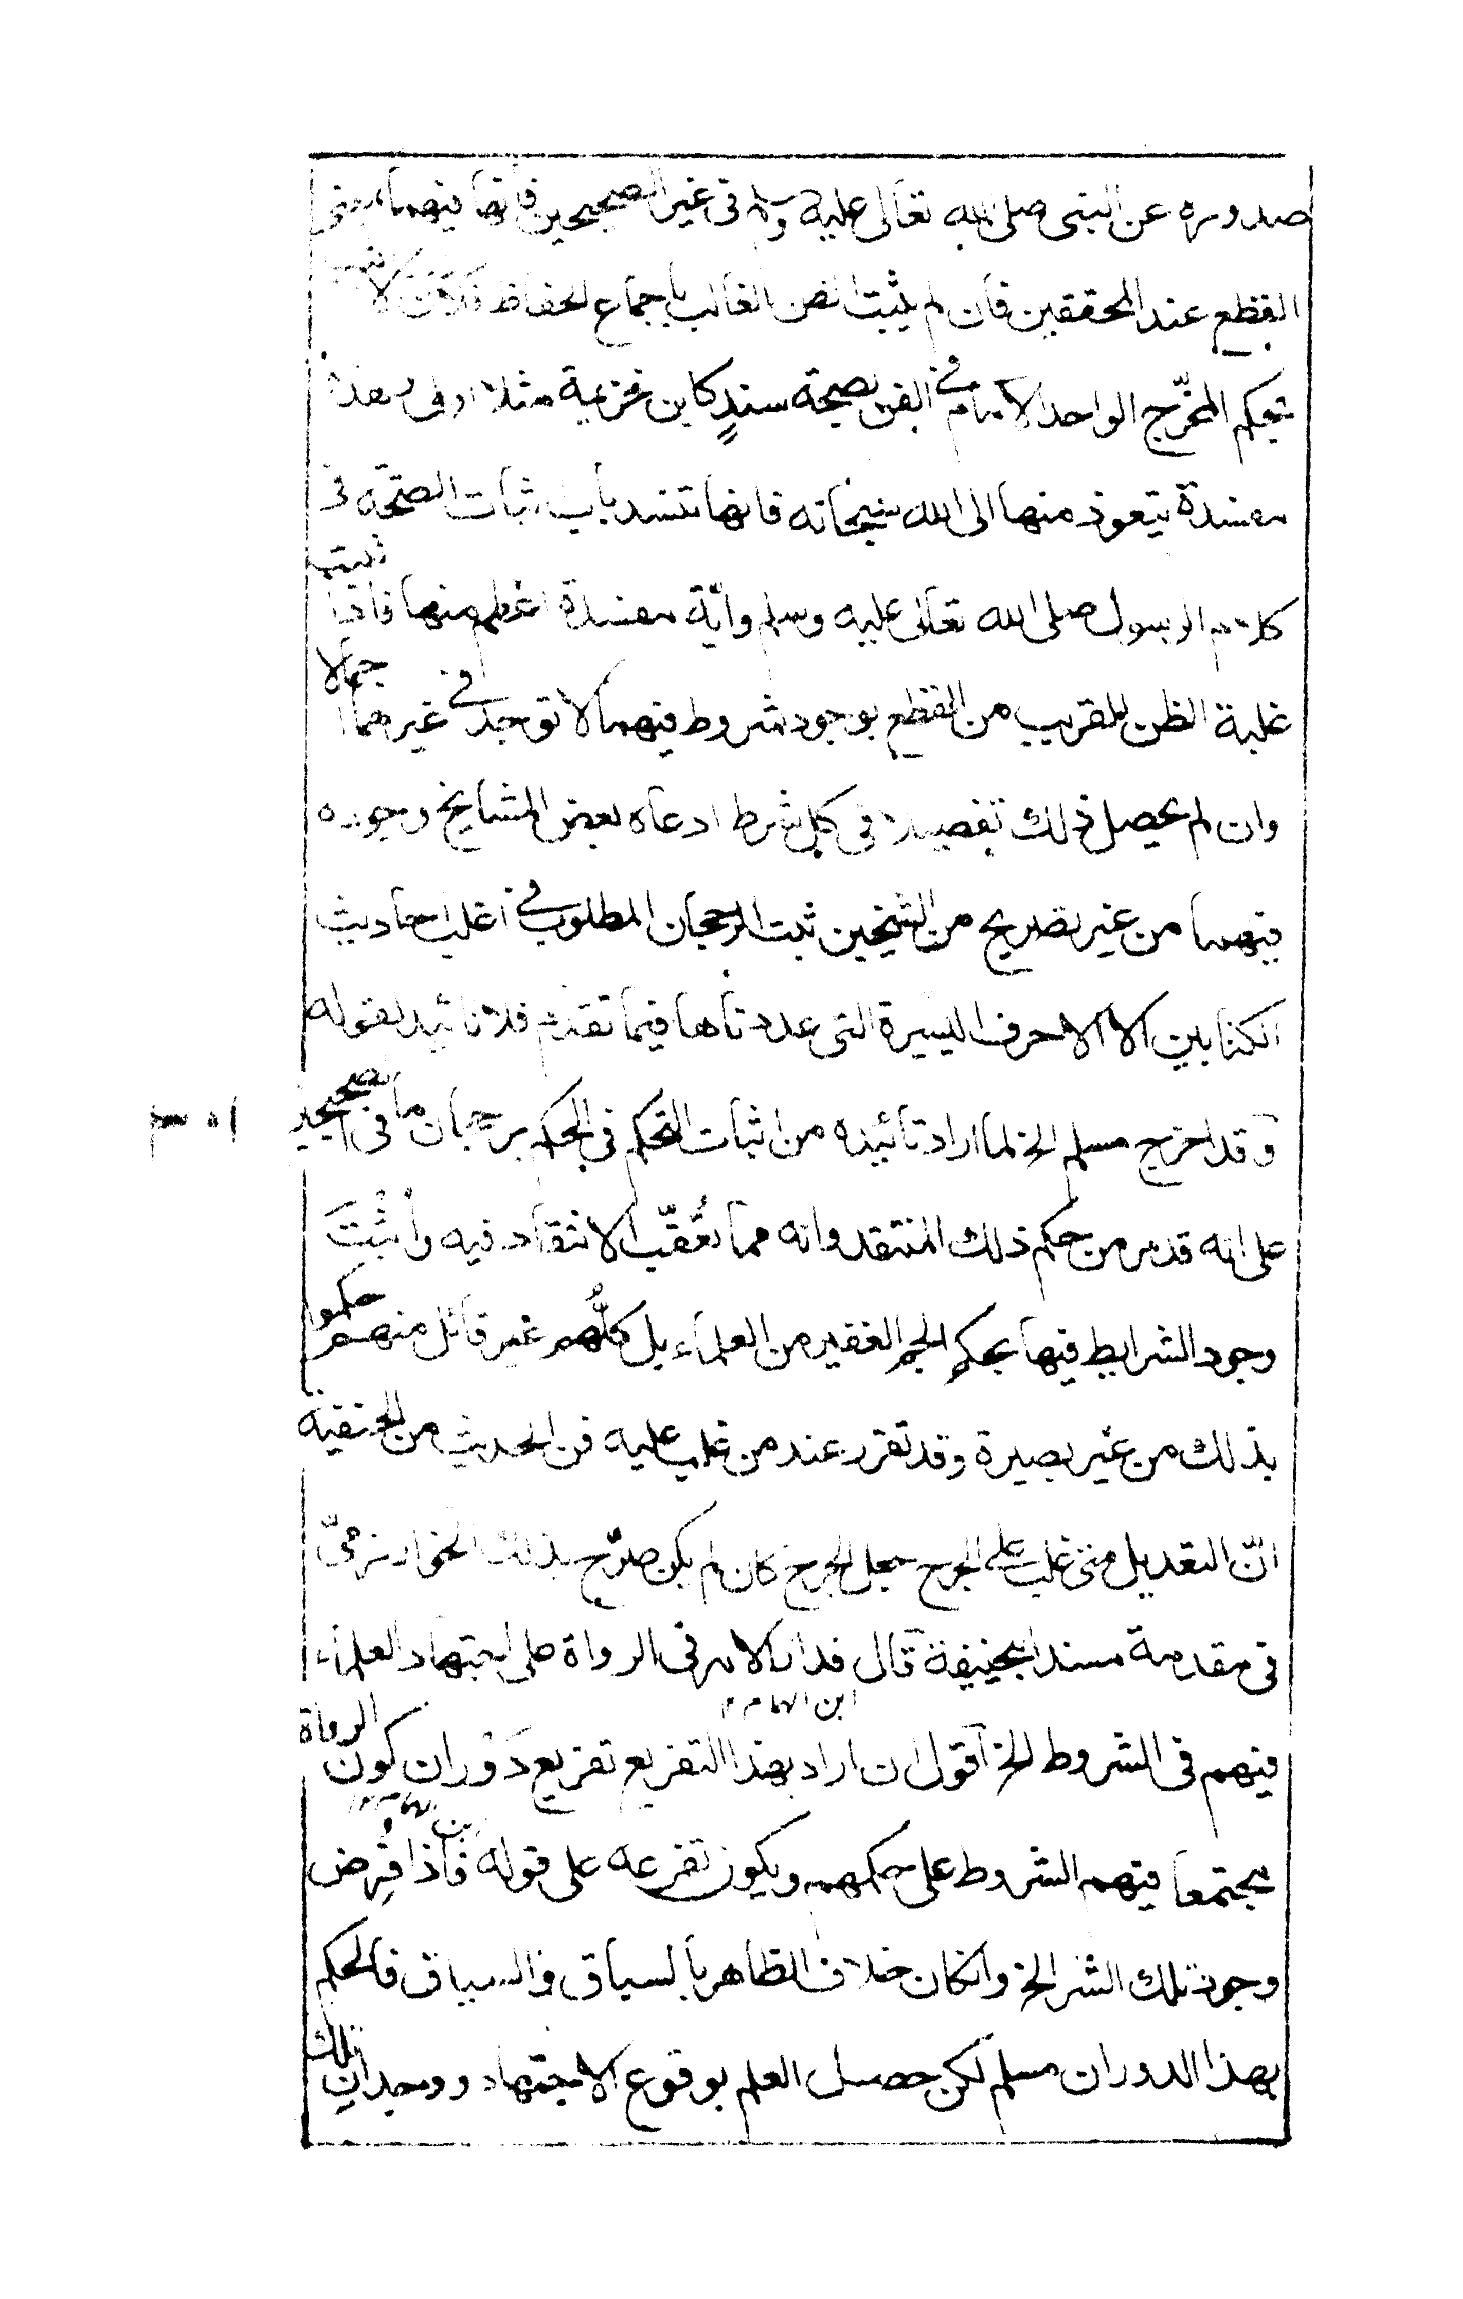 صدوره عن النبي صلى الله تعالى عليه وسلم في غير الصحيحين فانها فيهما
القطع عند المحققين فان لم يثبت الظن الغالب باجماع الحفاظ فلان لا يثبت
بحكم المخرّج الواحد الامام في الفن بصحة سندٍ كابن خزيمة مثلا اولى وهذه
مفسدة يتعوذ منها الى الله سبحانه فانها تسد باب اثبات الصحة في
كلام الرسول صلى الله تعالى عليه وسلم وايّة مفسدة اعظم منها فاذا ثبتت
غلبة الظن للقريب من القطع بوجود شروط فيهما لا توجد في غيرهما اجمالا
وان لم يحصل ذلك تفصيلا في كل شرط ادعاه بعض المشايخ وجوده
فيهما من غير تصريح من الشيخين ثبت الرجحان المطلوب في اغلب احاديث
الكتابين الا الاحرف اليسيرة التي عددناها فيما تقدم فلا تائيد لقوله
وقد اخرج مسلم الخ لما اراد تائيده من اثبات التحكم في الحكم برجحان ما في الصحيحين
على انه قد مر من حكم ذلك المنتقد وانه مما تُعُقِّب الانتقاد فيه وأُثْبِتَ
وجود الشرايط فيها بحكم الجم الغفير من العلماء بل كلُّهم غير قائل منهم حكموا
بذلك من غير بصيرة وقد تقرر عند من غلب عليه فن الحديث من الحنفية
انّ التعديل متى غلب على الجرح جعل الجرح كان لم يكن صرّح بذلك الخوارزميّ
في مقدمة مسند ابيحنيفة قال فدار الامر في الرواة على اجتهاد العلماء
ابن الهمام
فيهم في الشروط الخ اقول ان اراد بهذا التفريع تفريع دَوْران كون الرواة
ابن الهمام
مجتمعا فيهم الشروط على حكمهم ويكون تفرعه على قوله فاذا فُرِض
وجود تلك الشر الخ وانكان خلاف الظاهر بالسياق والسباق فالحكم
بهذا الدوران مسلم لكن حصل العلم بوقوع الاجتهاد ووجدان تلك